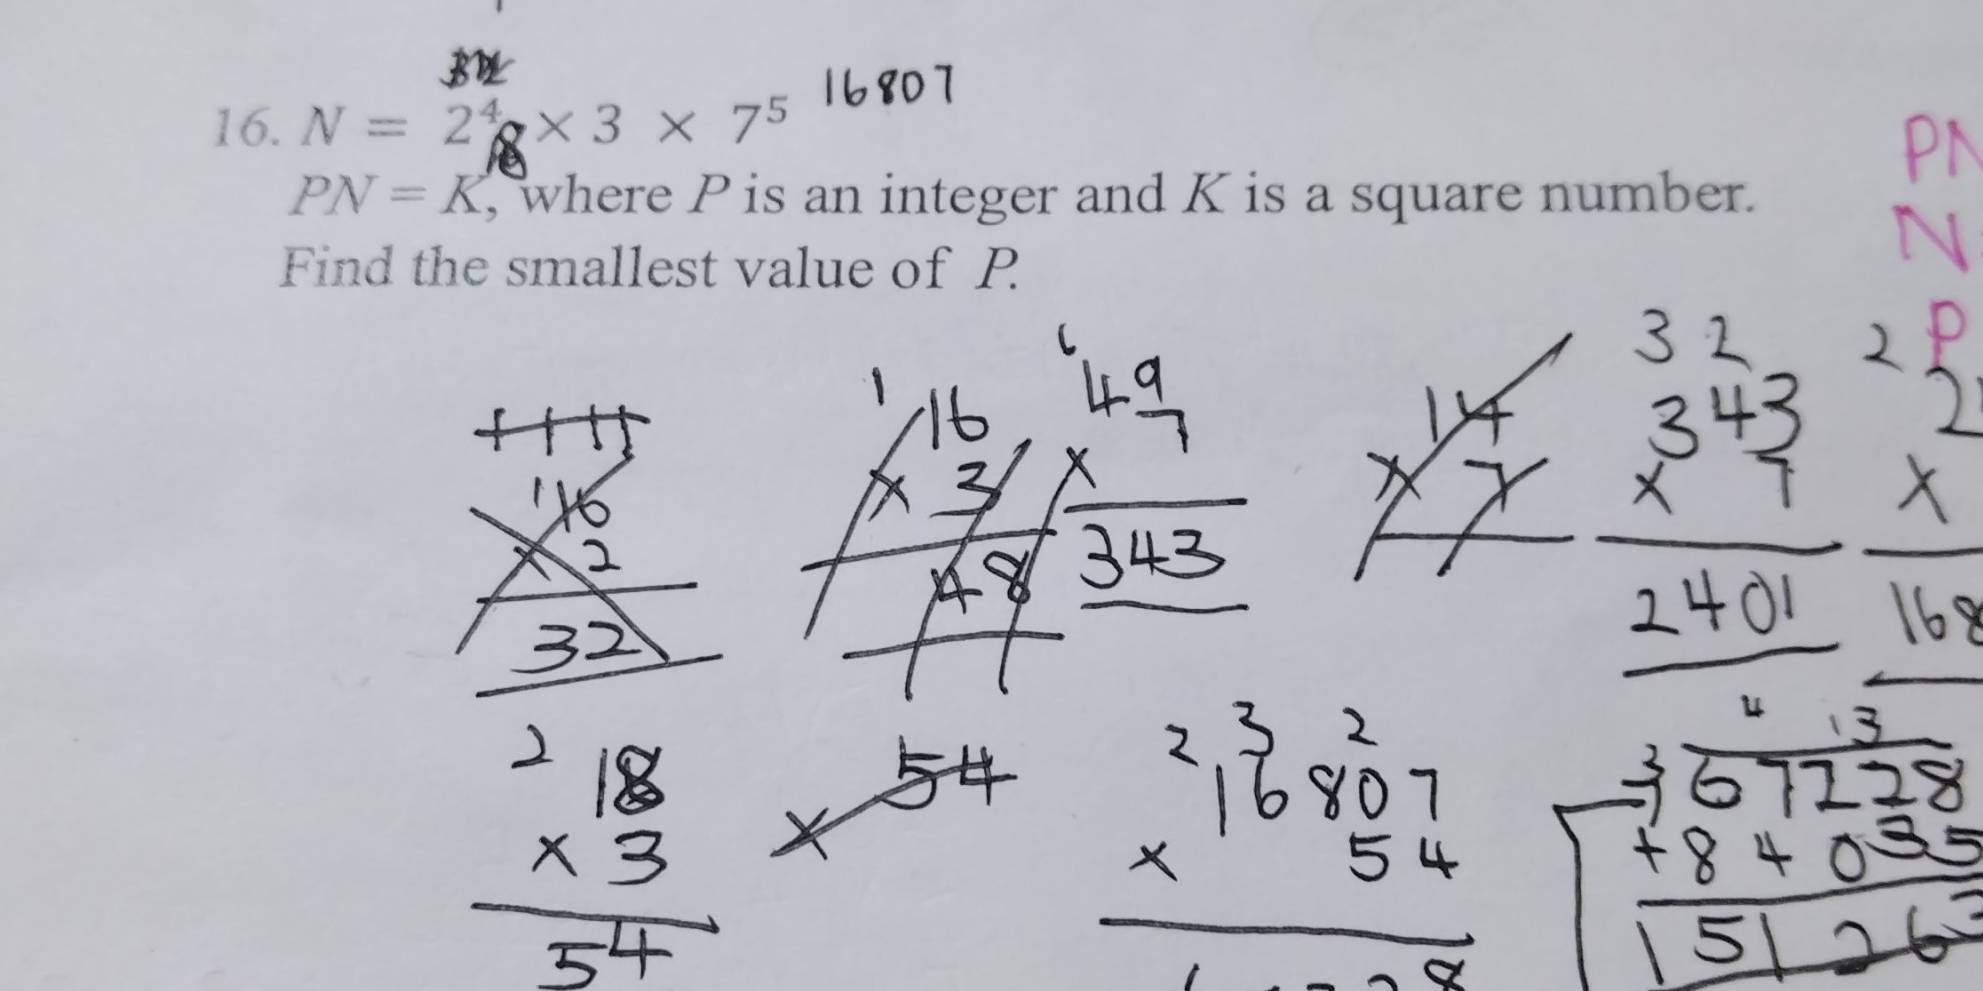 16807
16. N = 2⁴ × 3 × 7⁵
8
PN = K, where P is an integer and K is a square number.
Find the smallest value of P.
PN
N
P
16
× 2
32
1
16
× 3
48
6
49
× 7
343
14
× 7
3 2
343
× 7
2401
2
2
×
168
2
18
× 3
54
× 54
2 3 2
16807
× 54
8
4 13
67228
+ 84035
15126